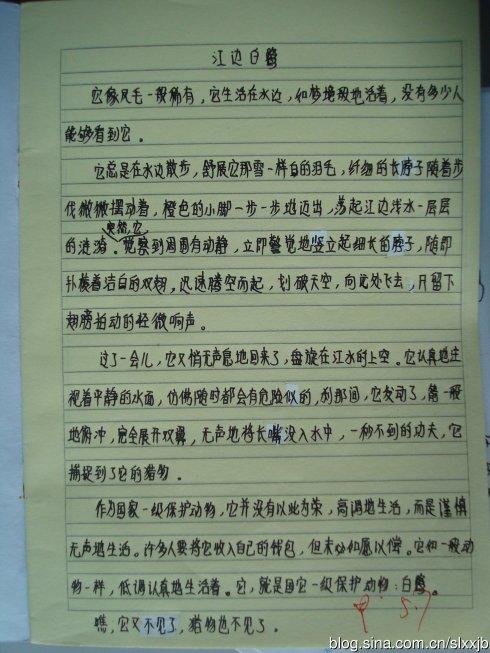 江边白鹭
它像凤毛一般稀有，它生活在水边，如梦境般地活着，没有多少人
能够看到它。
它总是在水边散步，舒展它那雪一样白的羽毛，纤细的长脖子随着步
伐微微摆动着，橙色的小脚一步一步地迈出，荡起江边浅水一层层
的涟漪。突然，它觉察到周围有动静，立即警觉地竖立起细长的脖子，随即
扑棱着洁白的双翅，迅速腾空而起，划破天空，向远处飞去，只留下
翅膀拍动的轻微响声。
过了一会儿，它又悄无声息地回来了，盘旋在江水的上空。它认真地注
视着平静的水面，仿佛随时都会有危险似的，刹那间，它发动了，箭一般
地俯冲，完全展开双翼，无声地将长嘴没入水中，一秒不到的功夫，它
捕捉到了它的猎物。
作为国家一级保护动物，它并没有以此为荣，高调地生活，而是谨慎
无声地生活。许多人要将它收入自己的钱包，但未必如愿以偿。它和一般动
物一样，低调认真地生活着。它，就是国家一级保护动物：白鹭。
瞧，它又不见了，猎物也不见了。
5.7
blog.sina.com.cn/slxxjb